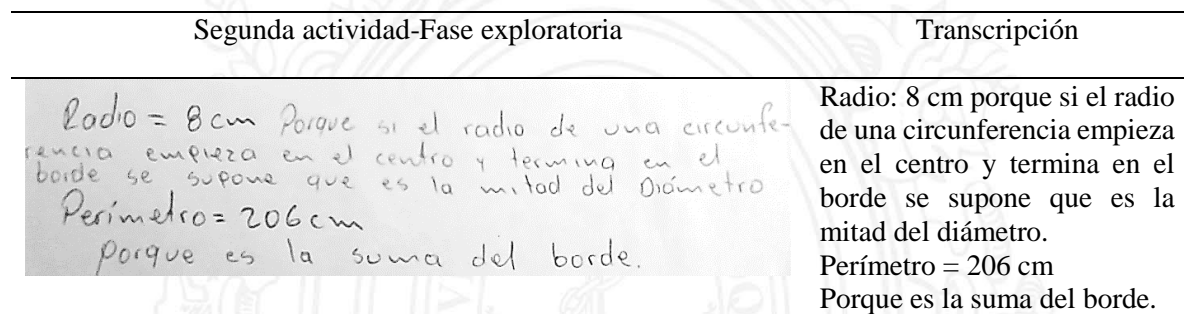 Segunda actividad-Fase exploratoria
Transcripción
Radio = 8 cm Porque si el radio de una circunfe-
rencia empieza en el centro y termina en el
borde se supone que es la mitad del Diámetro
Perímetro = 206 cm
Porque es la suma del borde.
Radio: 8 cm porque si el radio
de una circunferencia empieza
en el centro y termina en el
borde se supone que es la
mitad del diámetro.
Perímetro = 206 cm
Porque es la suma del borde.